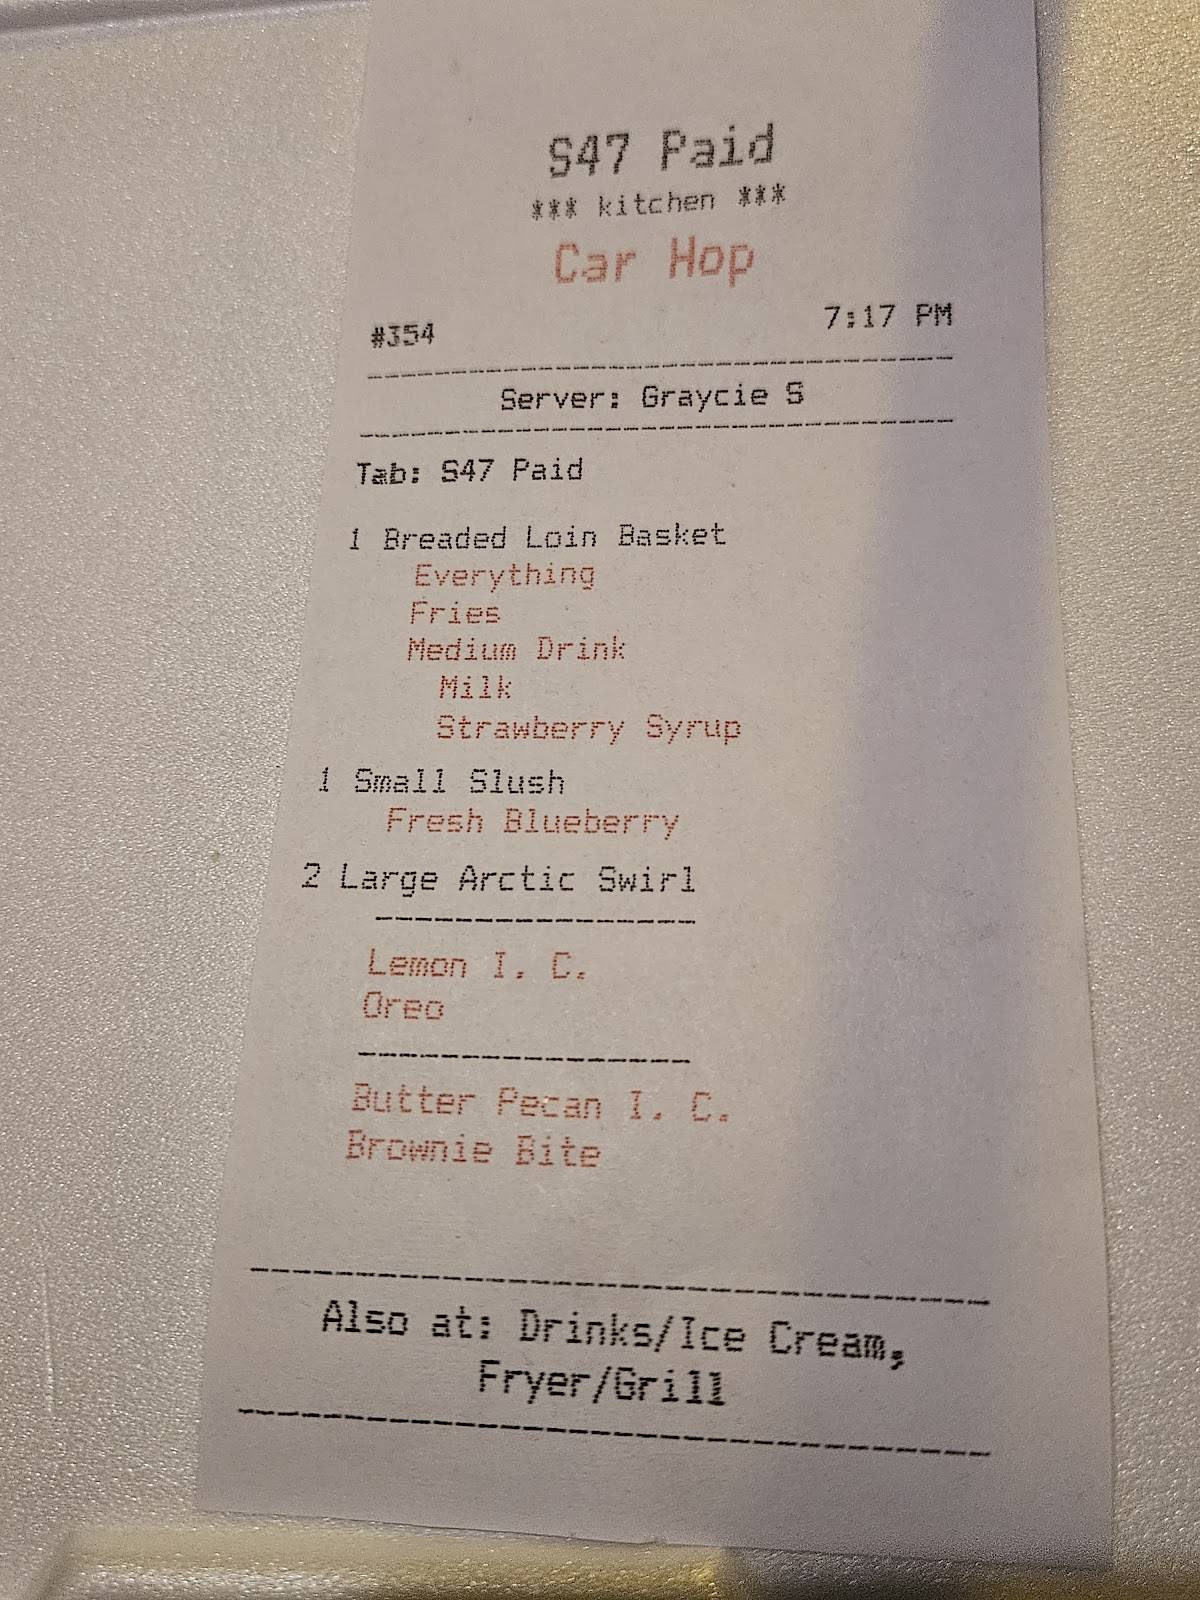 S47 Paid
*** kitchen ***
Car Hop
#354 7:17 PM
Server: Graycie S
Tab: S47 Paid
1 Breaded Loin Basket
Everything
Fries
Medium Drink
Milk
Strawberry Syrup
1 Small Slush
Fresh Blueberry
2 Large Arctic Swirl
Lemon I. C.
Oreo
Butter Pecan I. C.
Brownie Bite
Also at: Drinks/Ice Cream,
Fryer/Grill